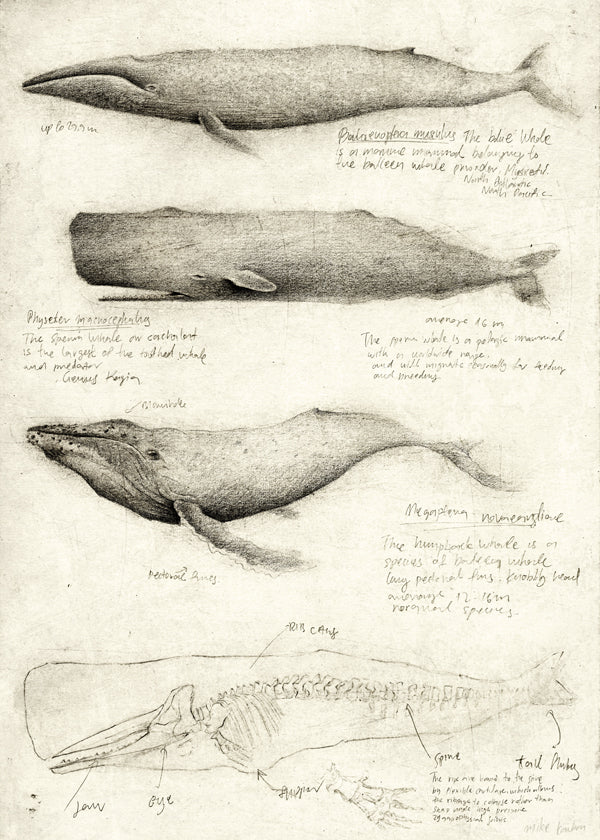 up to 29.9 m
Balaenoptera musculus The blue Whale
is a marine mammal belonging to
the baleen whale
North Atlantic
North Pacific
Physeter macrocephalus
The sperm whale or cachalot
is the largest of the toothed whale
and predator
average 16 m
The sperm whale is a pelagic mammal
with a worldwide range.
and will migrate seasonally for feeding
and breeding.
Blowhole
Megaptera novaeangliae
The humpback whale is a
species of baleen whale
long pectoral fins. Knobbly head
average 12-16m
rorqual species.
Pectoral fins
Rib cage
Spine
Tail Fluke
Jaw
Eye
Flipper
The ribs are bound to the spine
by flexible cartilage, which allows
the ribcage to collapse rather than
snap under high pressure